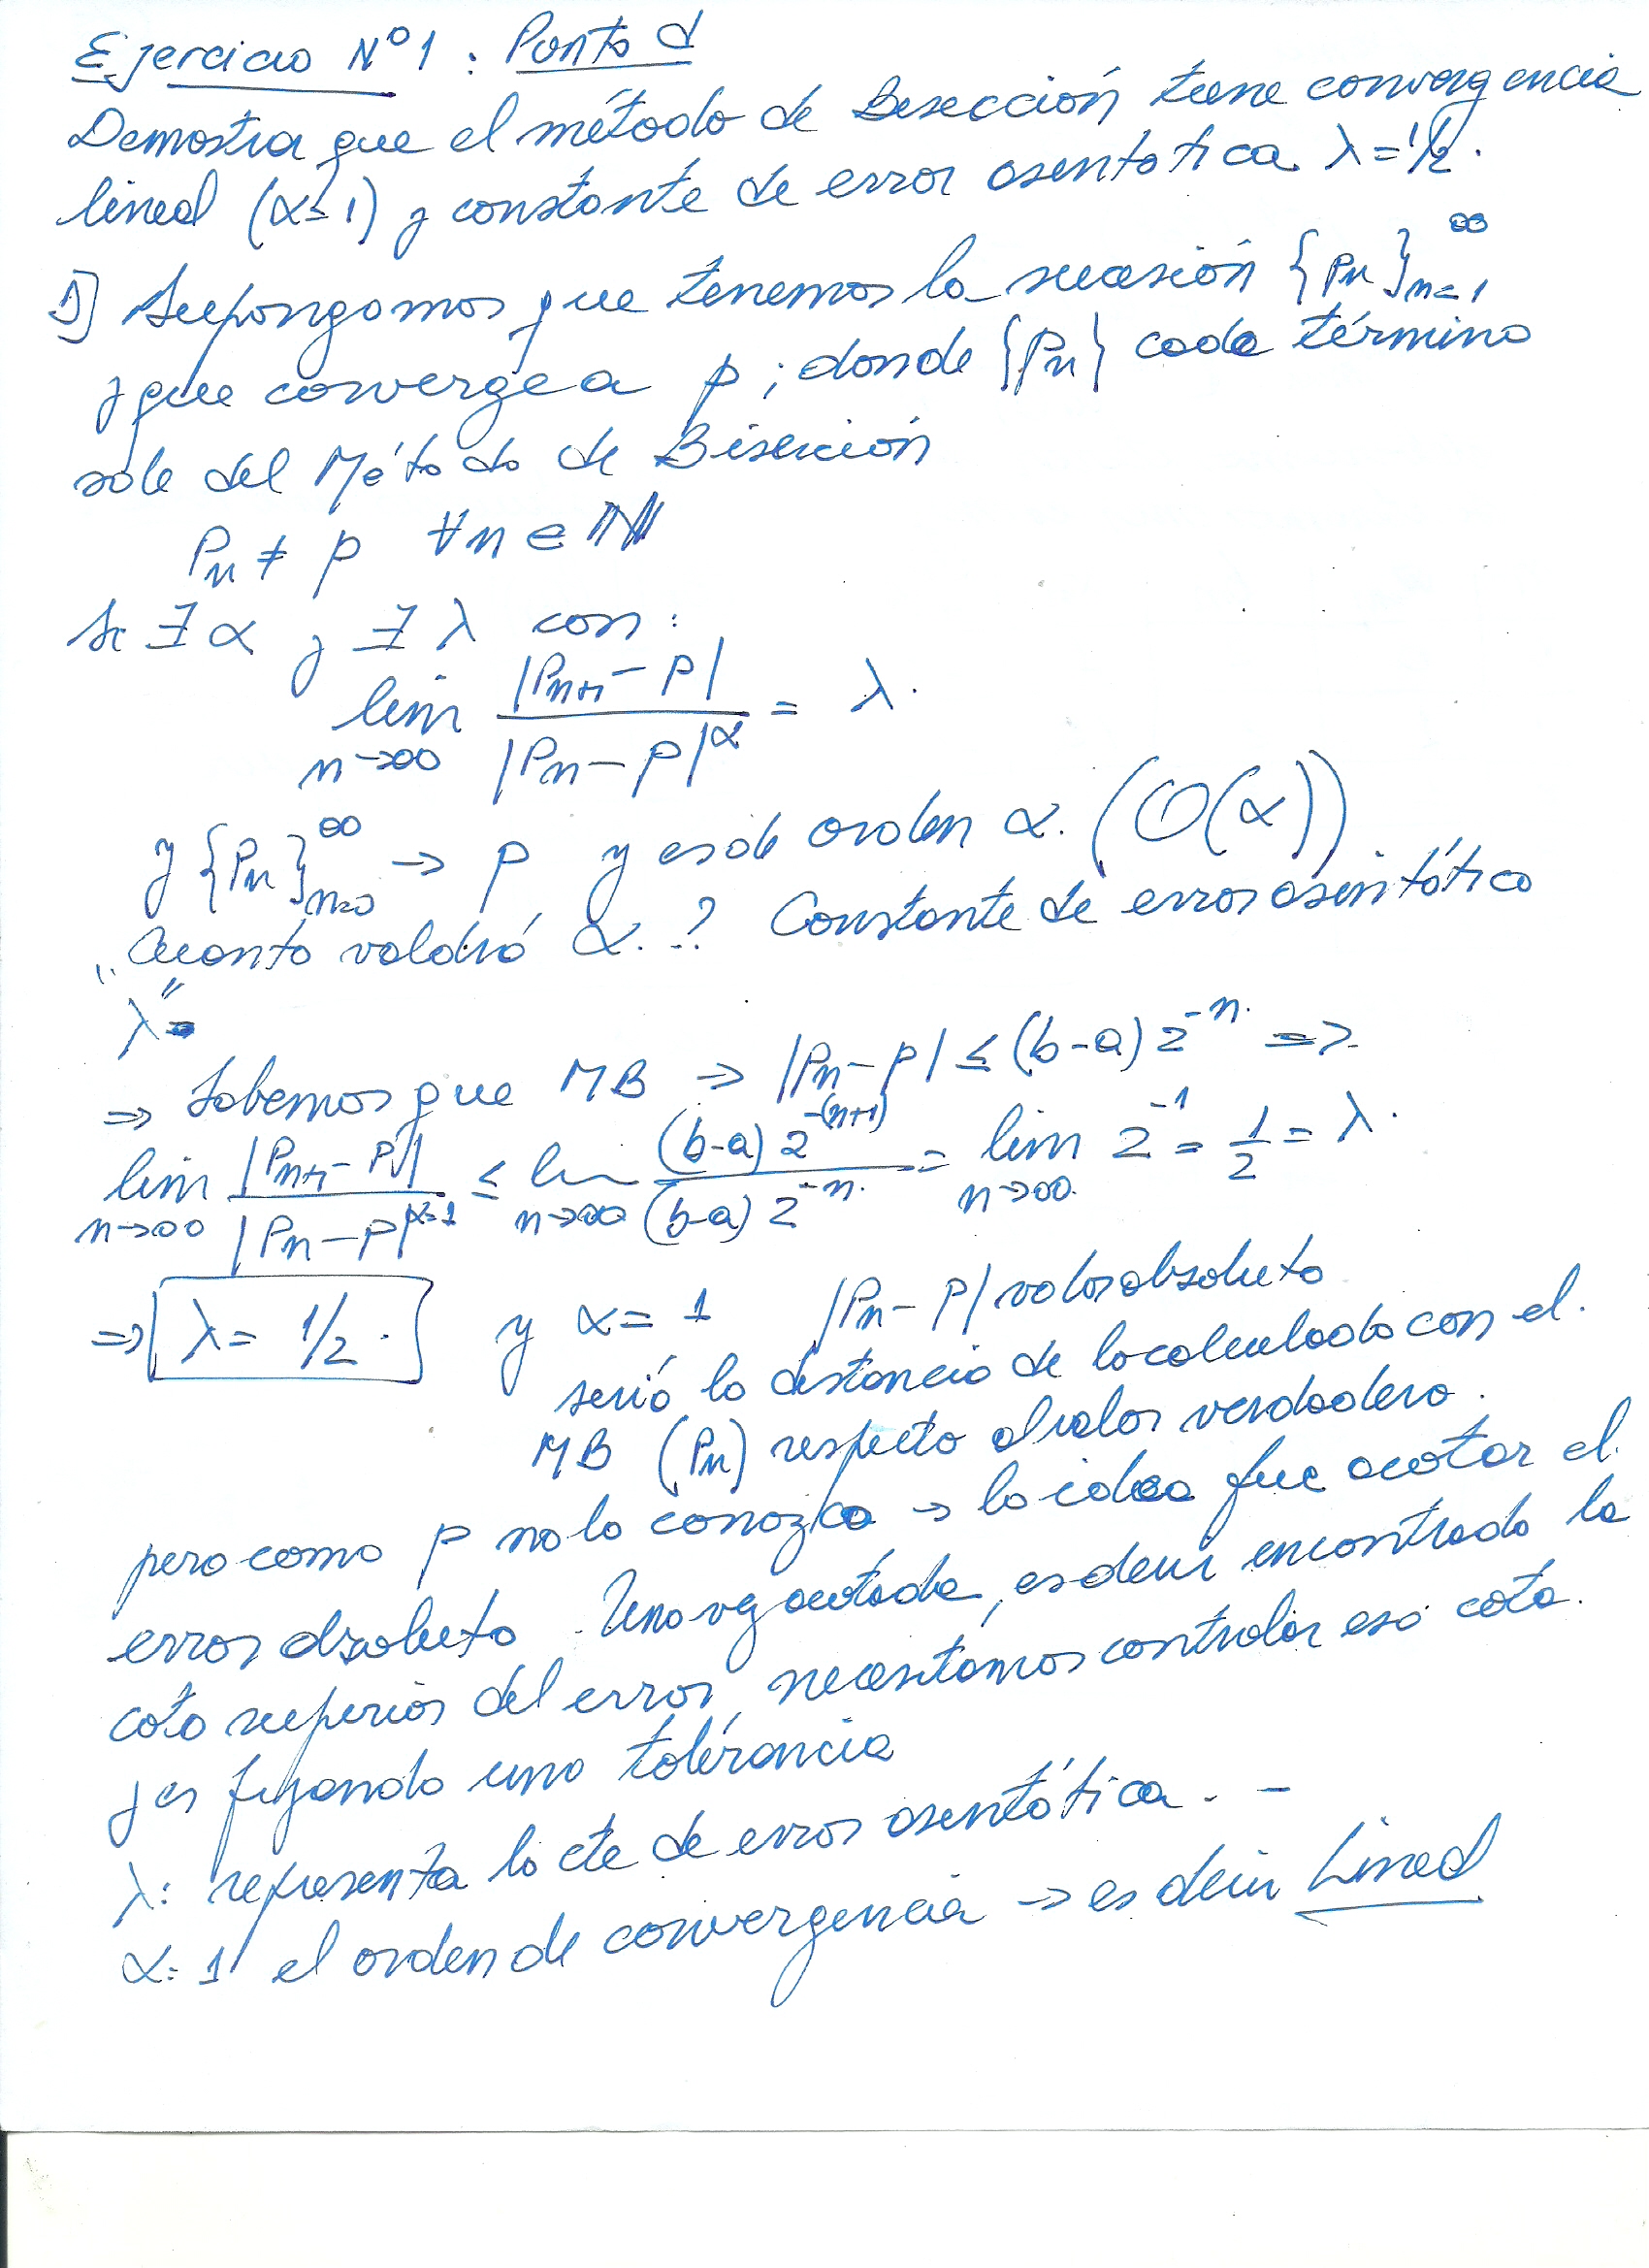 Ejercicio N°1 : Punto d
Demostrar que el método de Bisección tiene convergencia
lineal (α=1) y constante de error asentotica λ=1/2.
1) Supongamos que tenemos la sucesión {Pn}_{n=1}^∞
y que converge a p ; donde {Pn} cada término
sale del Método de Bisección
Pn ≠ p ∀n ∈ ℕ
Si ∃ α y ∃ λ con:
lim_{n→∞} |Pn+1 - P| / |Pn - P|^α = λ.
y {Pn}_{n=0}^∞ → p y es de orden α. (O(α))
Cuanto valdrá α..? Constante de error asintótico
"λ"
⇒ Sabemos que MB → |Pn - P| ≤ (b-a) 2^{-n} ⇒
lim_{n→∞} |Pn+1 - P| / |Pn - P|^{α=1} ≤ lim_{n→∞} (b-a) 2^{-(n+1)} / (b-a) 2^{-n} = lim_{n→∞} 2^{-1} = 1/2 = λ.
⇒ λ = 1/2 . y α = 1 |Pn - P| valor absoluto
será la distancia de lo calculado con el
MB (Pn) respecto al valor verdadero.
pero como P no lo conozco → la idea fue acotar el
error absoluto. Una vez acotada, es decir encontrado la
cota superior del error, necesitamos controlar esa cota.
y es fijando una tolérancia
λ: representa la cte de error asentótica. -
α: 1 el orden de convergencia → es decir Lineal